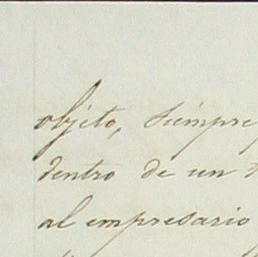 objeto, siempre
dentro de un
al empresario